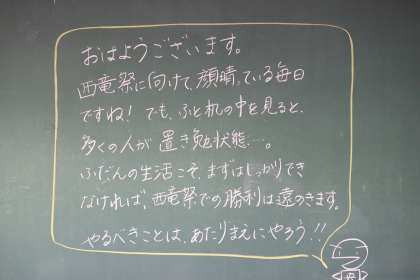 おはようございます。
西竜祭に向けて、顔晴っている毎日
ですね！でも、ふと机の中を見ると、
多くの人が置き勉状態…。
ふだんの生活こそ、まずはしっかりでき
なければ、西竜祭での勝利は遠のきます。
やるべきことは、あたりまえにやろう!!